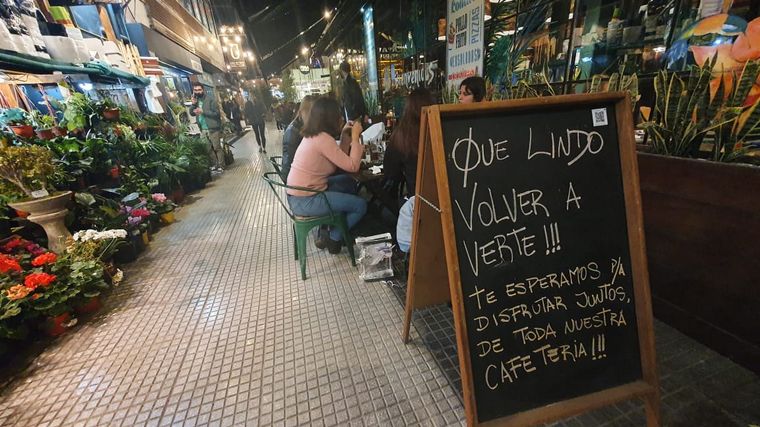 QUE LINDO
VOLVER A
VERTE!!!
TE ESPERAMOS P/A
DISFRUTAR JUNTOS,
DE TODA NUESTRA
CAFETERIA!!!
PIZZAS